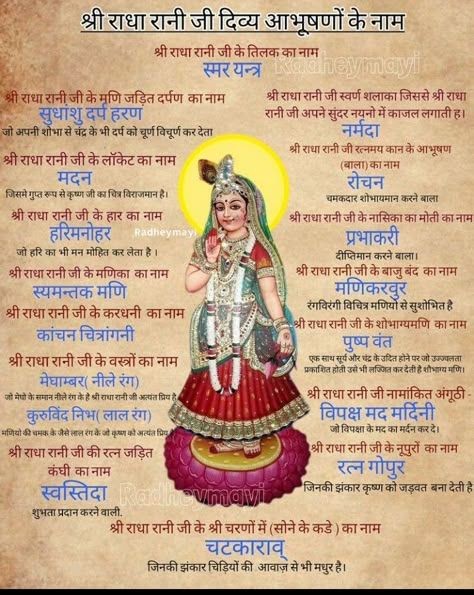 श्री राधा रानी जी दिव्य आभूषणों के नाम
श्री राधा रानी जी के तिलक का नाम
स्मर यन्त्र
Radheymayi
श्री राधा रानी जी के मणि जड़ित दर्पण का नाम
सुधांशु दर्प हरण
जो अपनी शोभा से चंद्र के भी दर्प को चूर्ण विचूर्ण कर देता
श्री राधा रानी जी के लॉकेट का नाम
मदन
जिसमे गुप्त रूप से कृष्ण जी का चित्र विराजमान है।
श्री राधा रानी जी के हार का नाम
हरिमनोहर
जो हरि का भी मन मोहित कर लेता है ।
श्री राधा रानी जी के मणिका का नाम
स्यमन्तक मणि
श्री राधा रानी जी के करधनी का नाम
कांचन चित्रांगनी
श्री राधा रानी जी के वस्त्रों का नाम
मेघाम्बर( नीले रंग)
जो मेघो के समान नीले रंग के है श्री राधा रानी जी अत्यंत प्रिय है
कुरुविंद निभ( लाल रंग)
मणियो की चमक के जैसे लाल रंग के जो कृष्ण को अत्यंत प्रिय है
श्री राधा रानी जी की रत्न जड़ित
कंघी का नाम
स्वस्तिदा
शुभता प्रदान करने वाली.
श्री राधा रानी जी स्वर्ण शलाका जिससे श्री राधा
रानी जी अपने सुंदर नयनो में काजल लगाती ह।
नर्मदा
श्री राधा रानी जी रत्नमय कान के आभूषण
(बाला) का नाम
रोचन
चमकदार शोभायमान करने बाला
श्री राधा रानी जी के नासिका का मोती का नाम
प्रभाकरी
दीप्तिमान करने बाला।
श्री राधा रानी जी के बाजु बंद का नाम
मणिकरवुर
रंगविरंगी विचित्र मणियो से सुशोभित है
श्री राधा रानी जी के शोभाग्यमणि का नाम
पुष्प वंत
एक साथ सूर्य और चंद्र के उदित होने पर जो उज्ज्वलता
प्रकाशित होती उसे भी लज्जित कर देती है शौभाग्य मणि।
श्री राधा रानी जी नामांकित अंगूठी -
विपक्ष मद मर्दिनी
जो विपक्षा के मद का मर्दन कर दे।
श्री राधा रानी जी के नूपुरों का नाम
रत्न गोपुर
जिनकी झंकार कृष्ण को जड़वत बना देती है
Radheymayi
Radheymayi
श्री राधा रानी जी के श्री चरणों में (सोने के कडे ) का नाम
चटकाराव्
जिनकी झंकार चिड़ियों की आवाज़ से भी मधुर है।